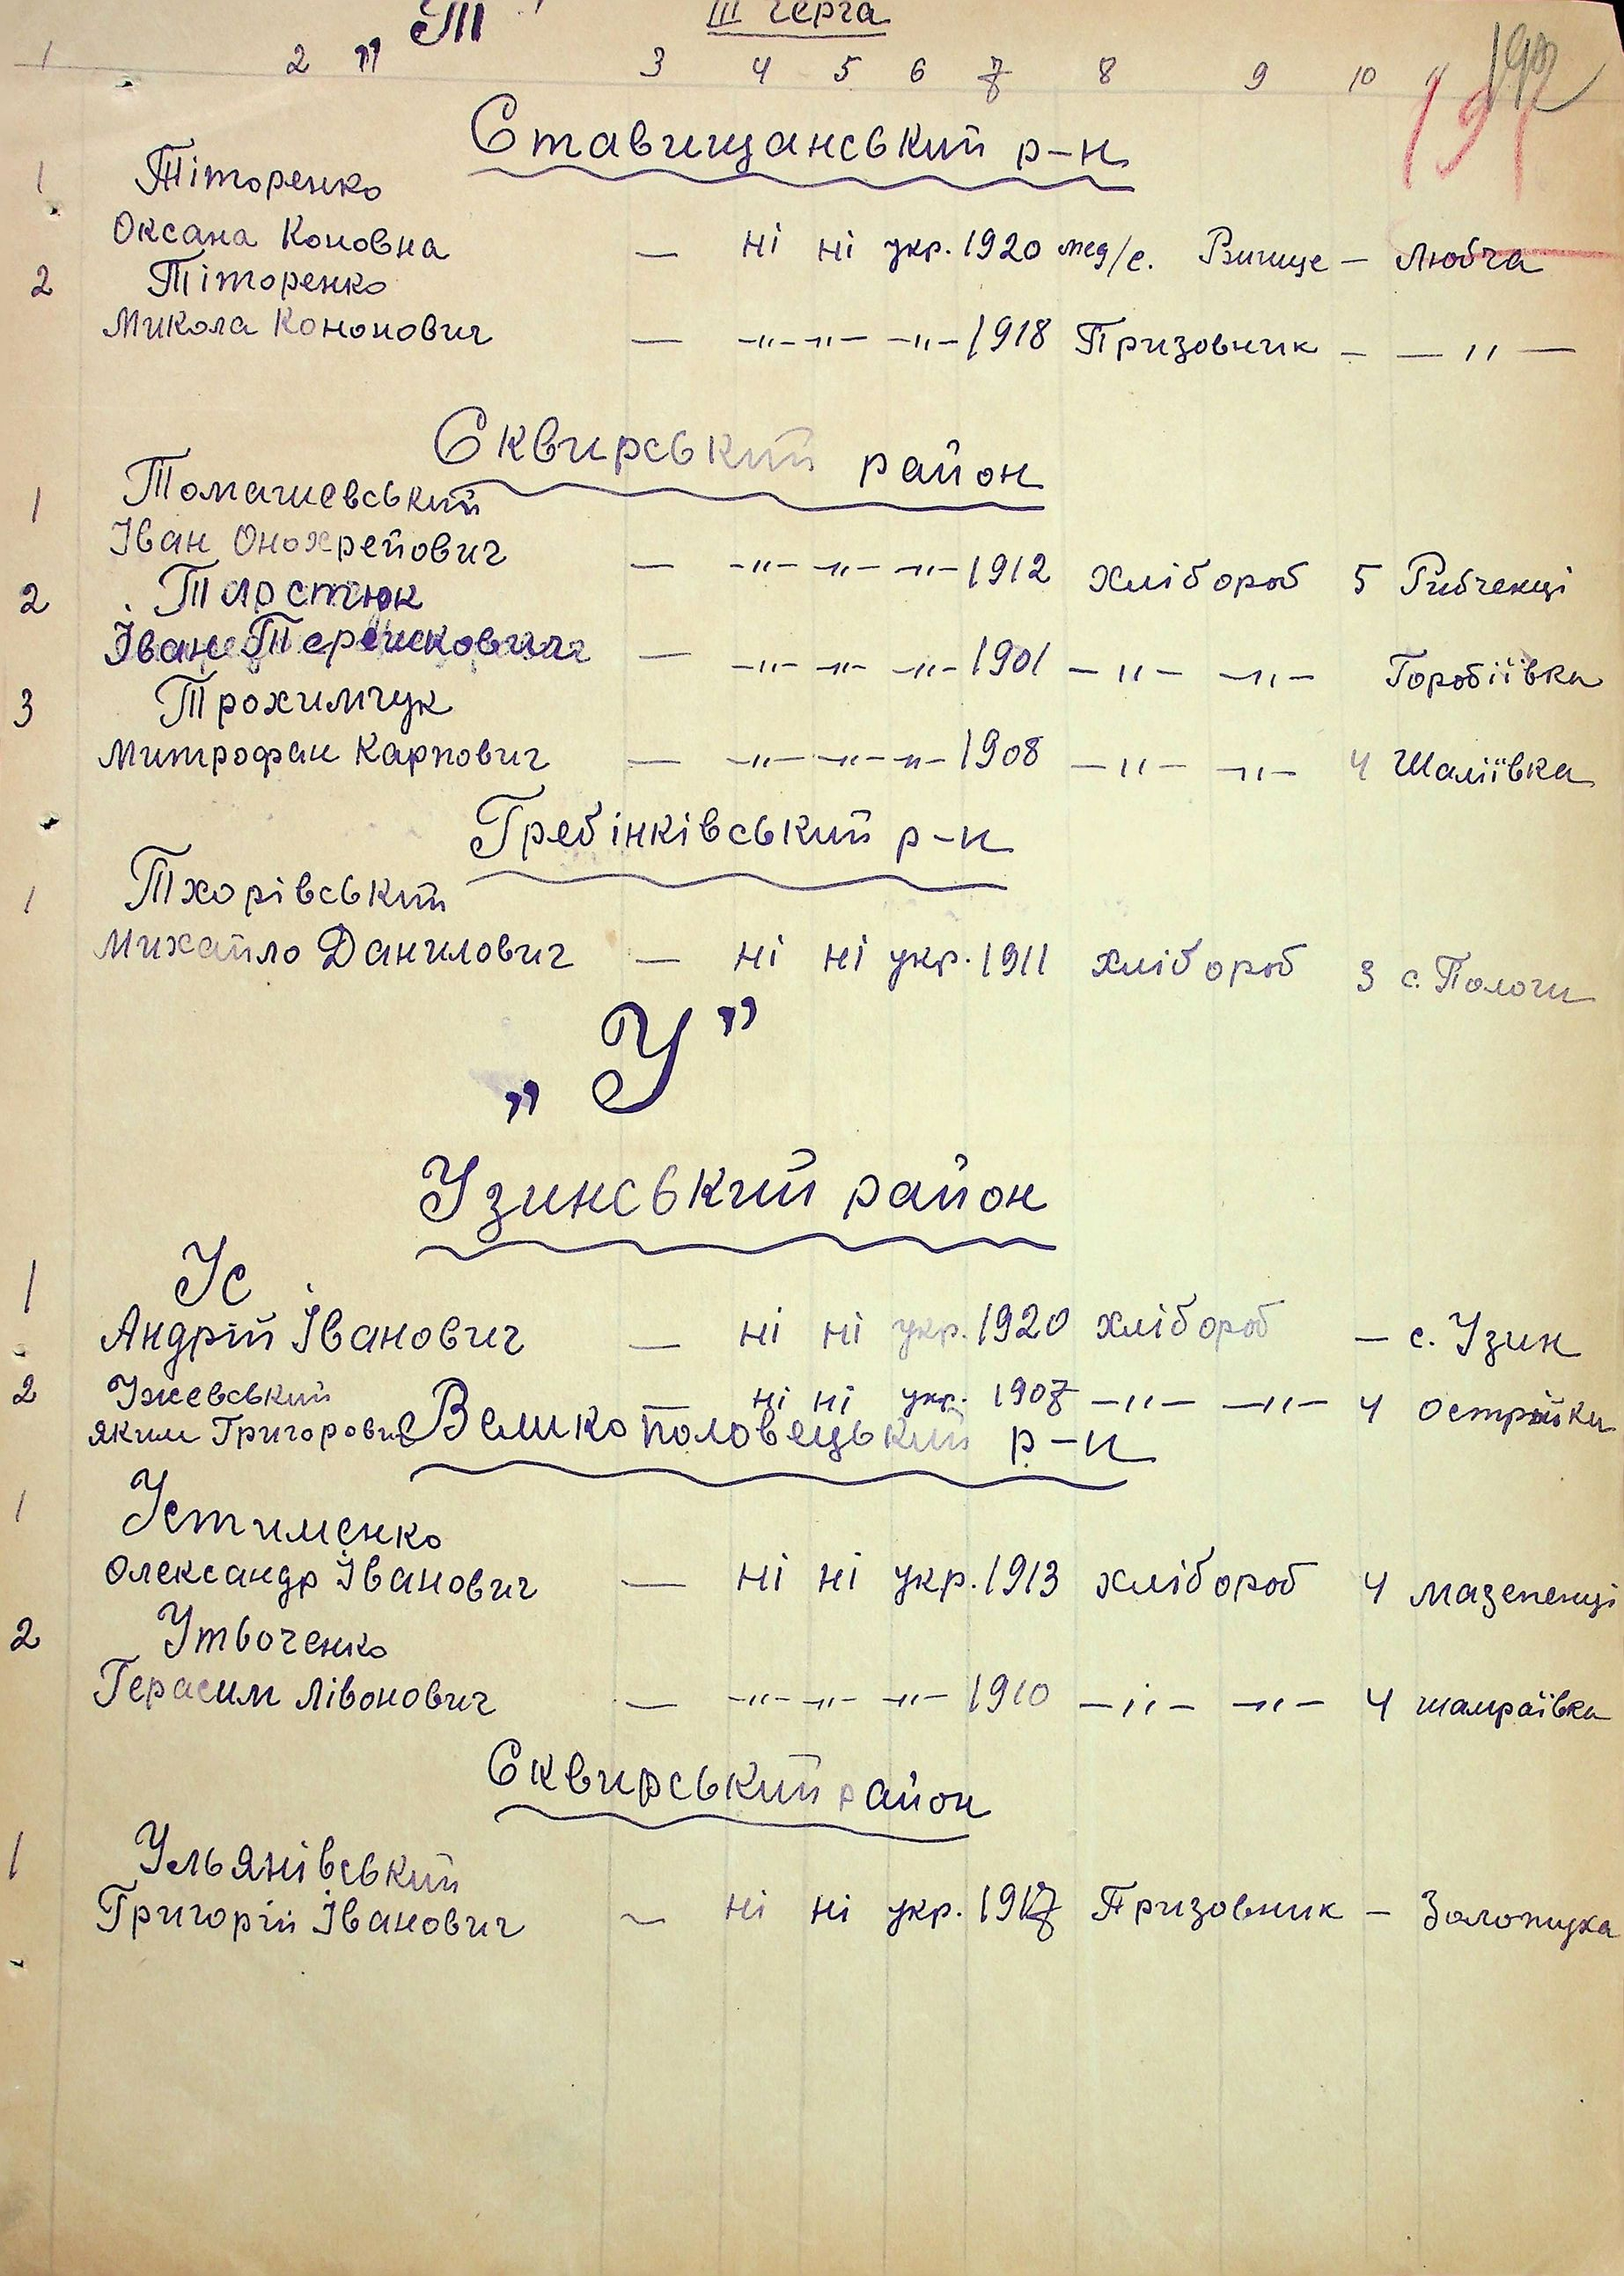 „ Т "
III черга
1 2 3 4 5 6 7 8 9 10 11
192
197
Ставищанський р-н
1 Тіторенко
Оксана Коновна — ні ні укр. 1920 мед/с. Вище — Любча
2 Тіторенко
Микола Кононович — -"- -"- -"- 1918 Призовник — — " —
Сквирський район
1 Томашевський
Іван Онохрейович — -"- -"- -"- 1912 хлібороб 5 Рибченці
2 Тарстюк
Іван — -"- -"- -"- 1901 -"- -"- Горобіївка
3 Трохимчук
Митрофан Карпович — -"- -"- -"- 1908 -"- -"- 4 Шаліївка
Гребінківський р-н
1 Тхорівський
Михайло Данилович — ні ні укр. 1911 хлібороб 3 с. Пологи
„ У "
Узинський район
1 Ус
Андрій Іванович — ні ні укр. 1920 хлібороб — с. Узин
2 Ужевський
Яким Григорович — ні ні укр. 1907 -"- -"- 4 Острійки
Великополовецький р-н
1 Устименко
Олександр Іванович — ні ні укр. 1913 хлібороб 4 Мазепенці
2 Утвоченко
Герасим Лівонович — -"- -"- -"- 1910 -"- -"- 4 Шамраївка
Сквирський район
1 Ульянівський
Григорій Іванович — ні ні укр. 1917 Призовник — Золотуха